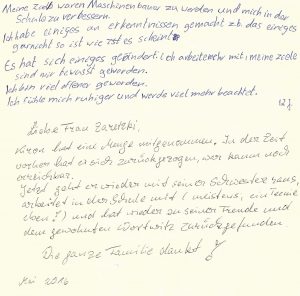 Meine ziele waren Maschinenbauer zu werden und mich in der
Schule zu verbessern.
Ich habe einiges an erkenntnissen gemacht z.b. das einiges
garnicht so ist wie ist es scheint
Es hat sich einiges geändert: Ich arbeite mehr mit, meine ziele
sind mir bewusst geworden.
Ich bin viel offener geworden.
Ich fühle mich ruhiger und werde viel mehr beachtet.
Liebe Frau Zaretzki,
hat eine Menge mitgenommen. In der Zeit
vorher hat er sich zurückgezogen, war kaum noch
erreichbar.
Jetzt geht er wieder mit seiner Schwester raus,
arbeitet in der Schule mit (meistens, ein Teenie
eben!) und hat wieder zu seiner Freude und
dem gewohnten Wortwitz zurückgefunden.
Die ganze Familie dankt
Mai 2016